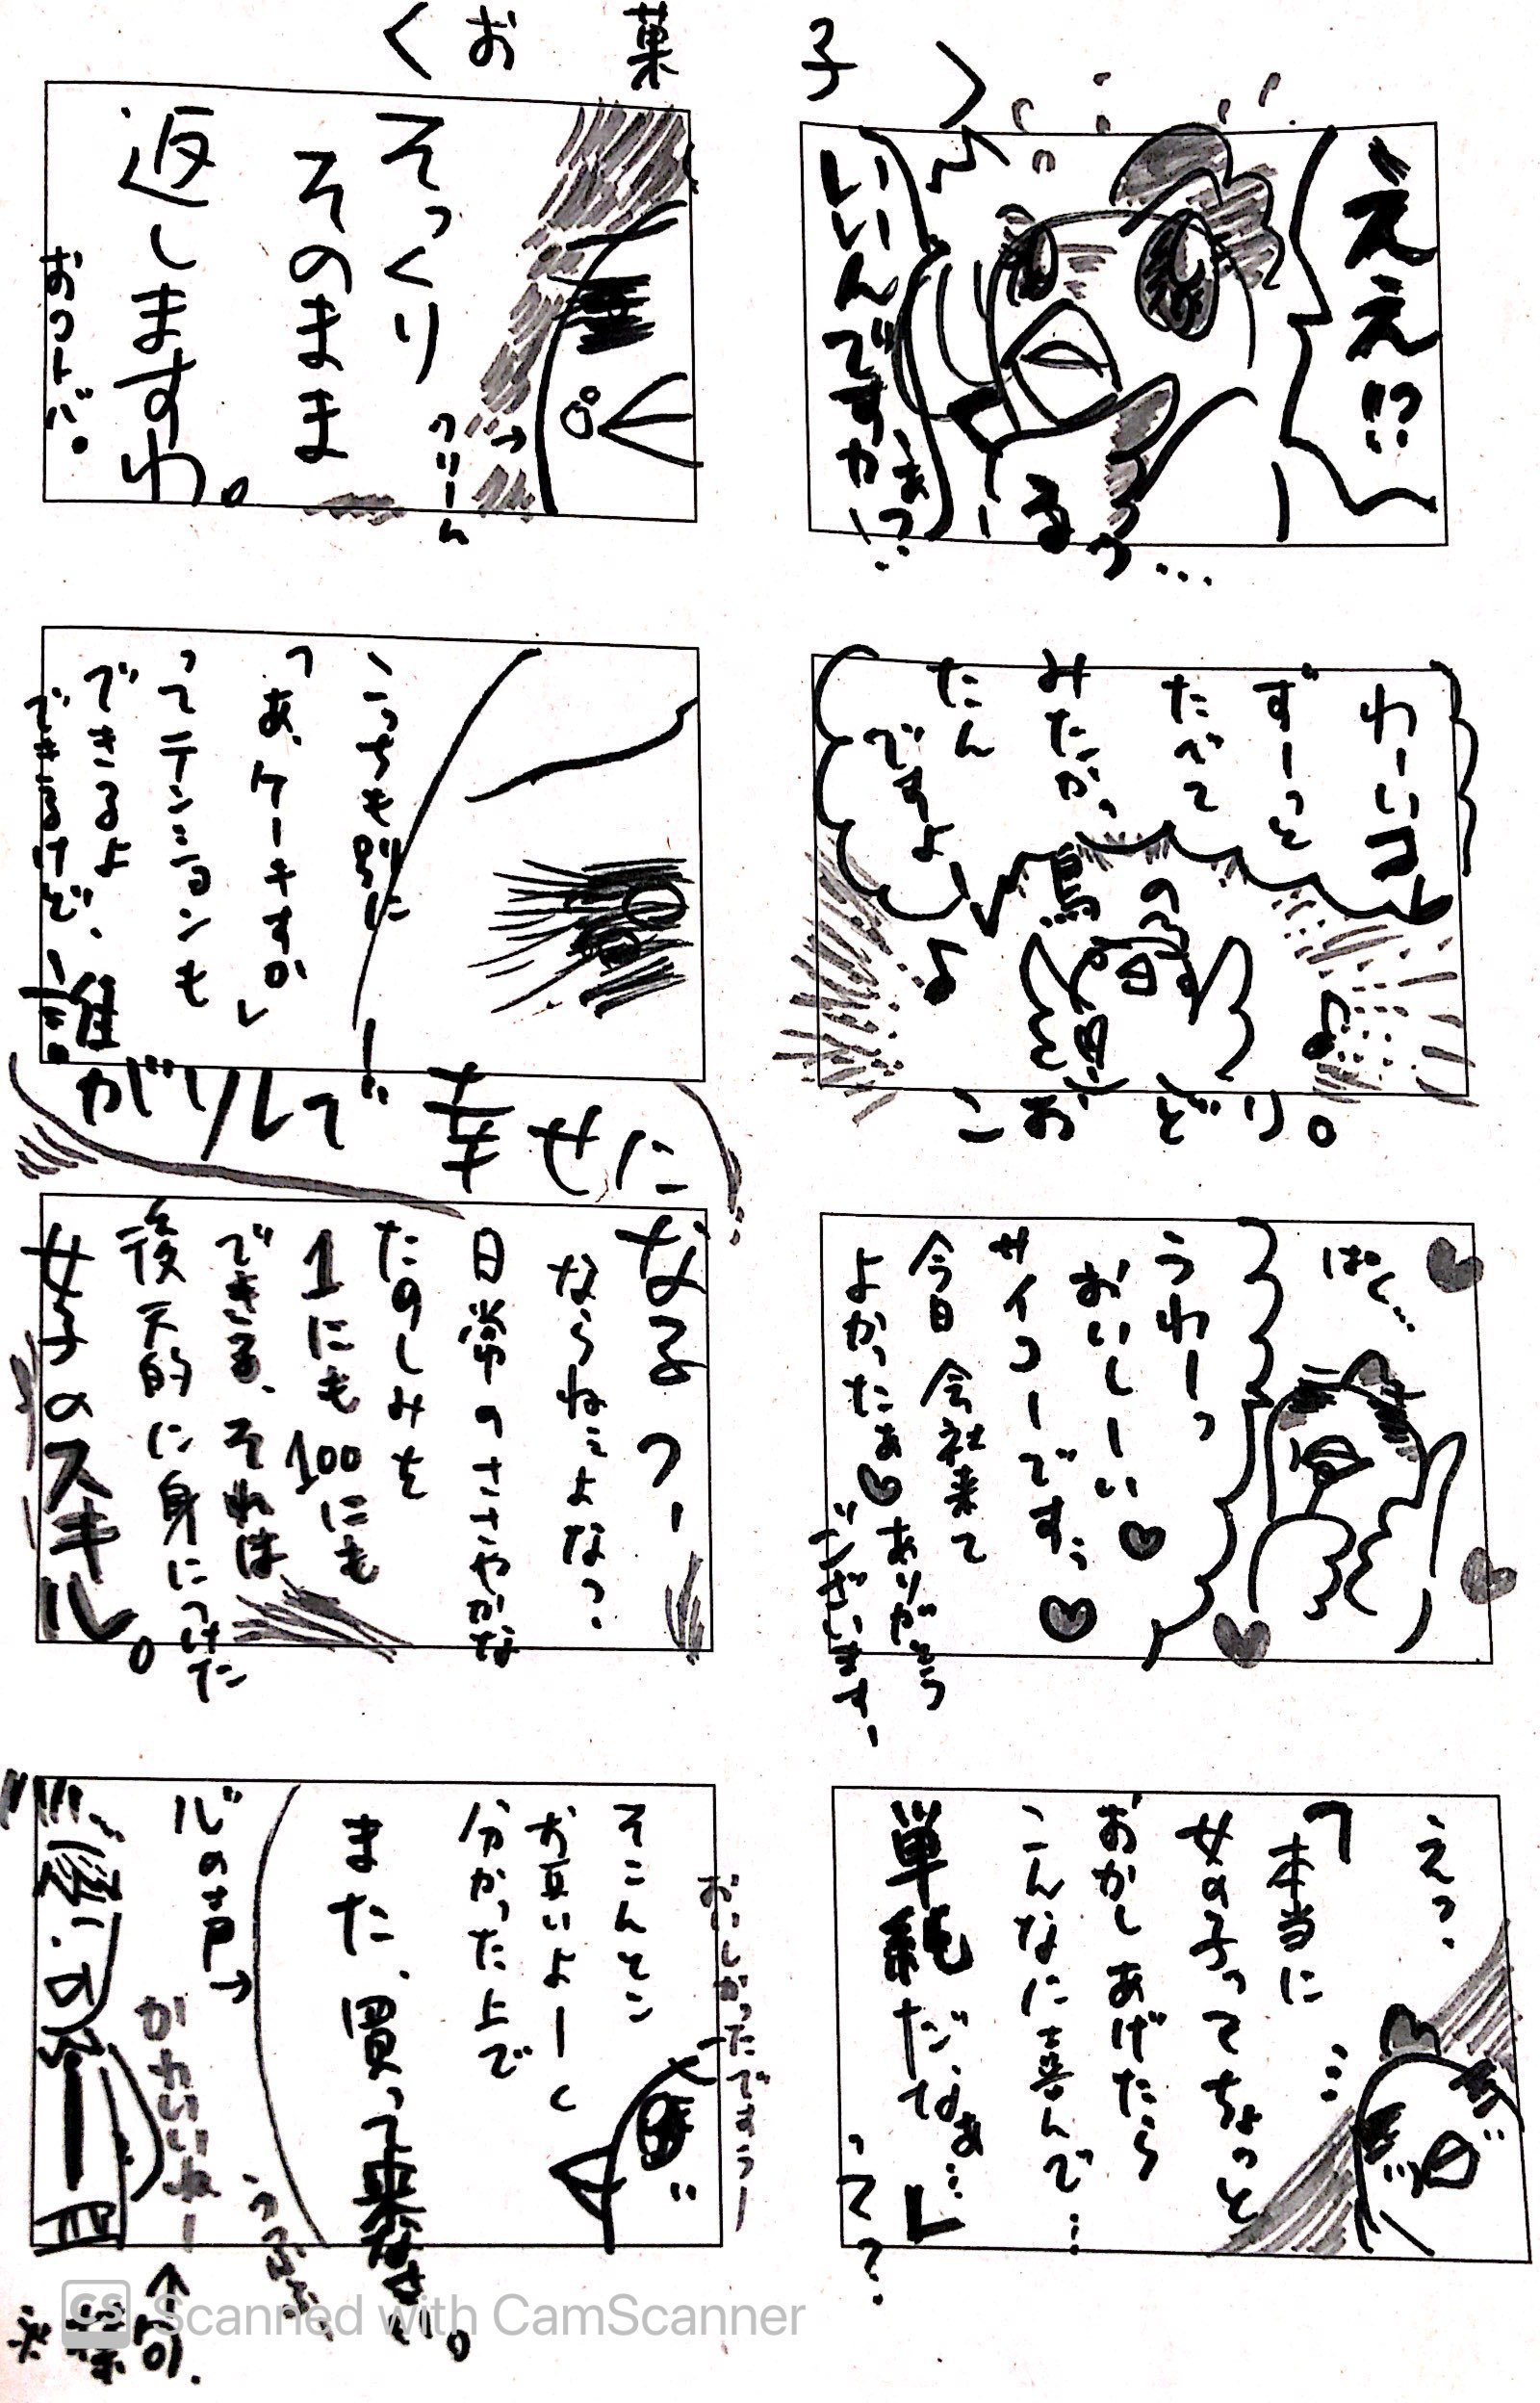 〈お菓子〉
ええ!?
いいんですか
まっ
るっ…
わーいコレ
ずーっと
たべて
みたかっ
たん
ですよ
鳥の
こおどり。
ぱく…
うわーっ
おいしーい
サイコーです
今日会社来て
よかったぁ
ありがとう
ございます
えっ、
「本当に
女の子ってちょっと
おかしあげたら
こんなに喜んで…
単純だなぁ…」
って?
そっくり
そのまま
返しますわ。
おつトバ。
→クリーム
こっちも別に
「あ、ケーキすか」
ってテンションも
できるよ
できるけど、
誰がソレで幸せに
なるっ
ならねぇよなっ
日常のささやかな
たのしみを
1にも100にも
できる、それは
後天的に身につけた
女子のスキル。
おいしかったですうー
そこんとこ
お互いよーく
分かった上で
また、買って来なさい。
心の声→
かわいいねー
うふふ